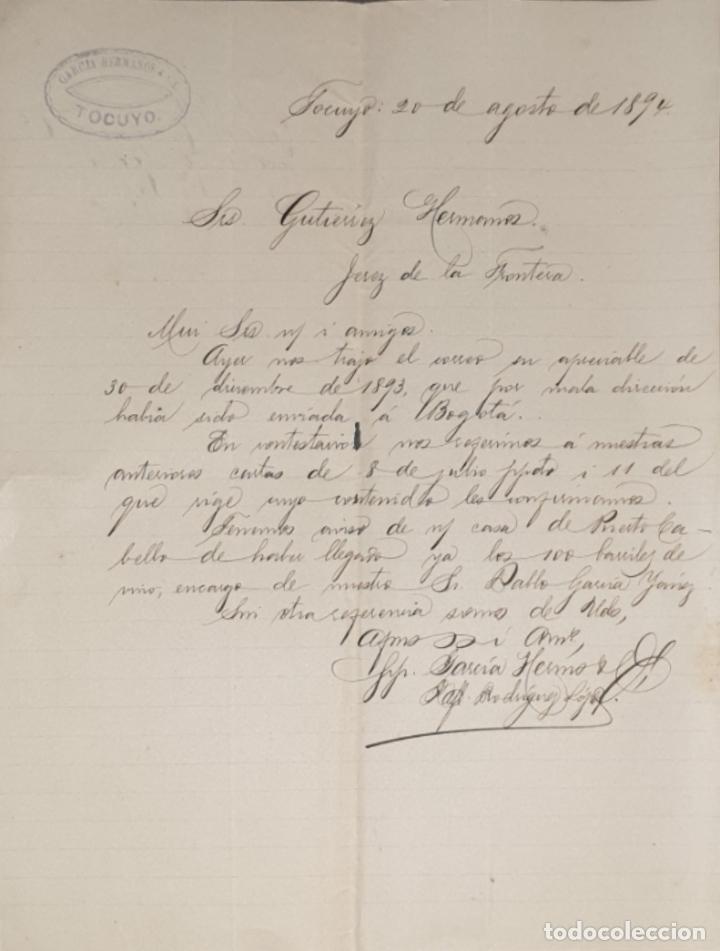 GARCIA HERMANOS & Cª.
TOCUYO.
Tocuyo: 20 de agosto de 1894.
Srs. Gutierrez Hermanos.
Jerez de la Frontera.
Mui Srs. n/ i amigos.
Ayer nos trajo el correo su apreciable de
30 de diciembre de 1893, que por mala dirección
habia sido enviada á Bogotá.
En contestacion nos referimos á nuestras
anteriores cartas de 8 de julio ppdo i 11 del
que rige cuyo contenido les confirmamos.
Tenemos aviso de n/ casa de Puerto Ca-
bello de haber llegado ya los 100 barriles de
vino, encargo de nuestro Sr. Pablo García Yanez.
Sin otra referencia somos de Uds,
Afmos SS i Ams,
pp. García Hermos & Cª
Raf. Rodríguez López.
todocoleccion